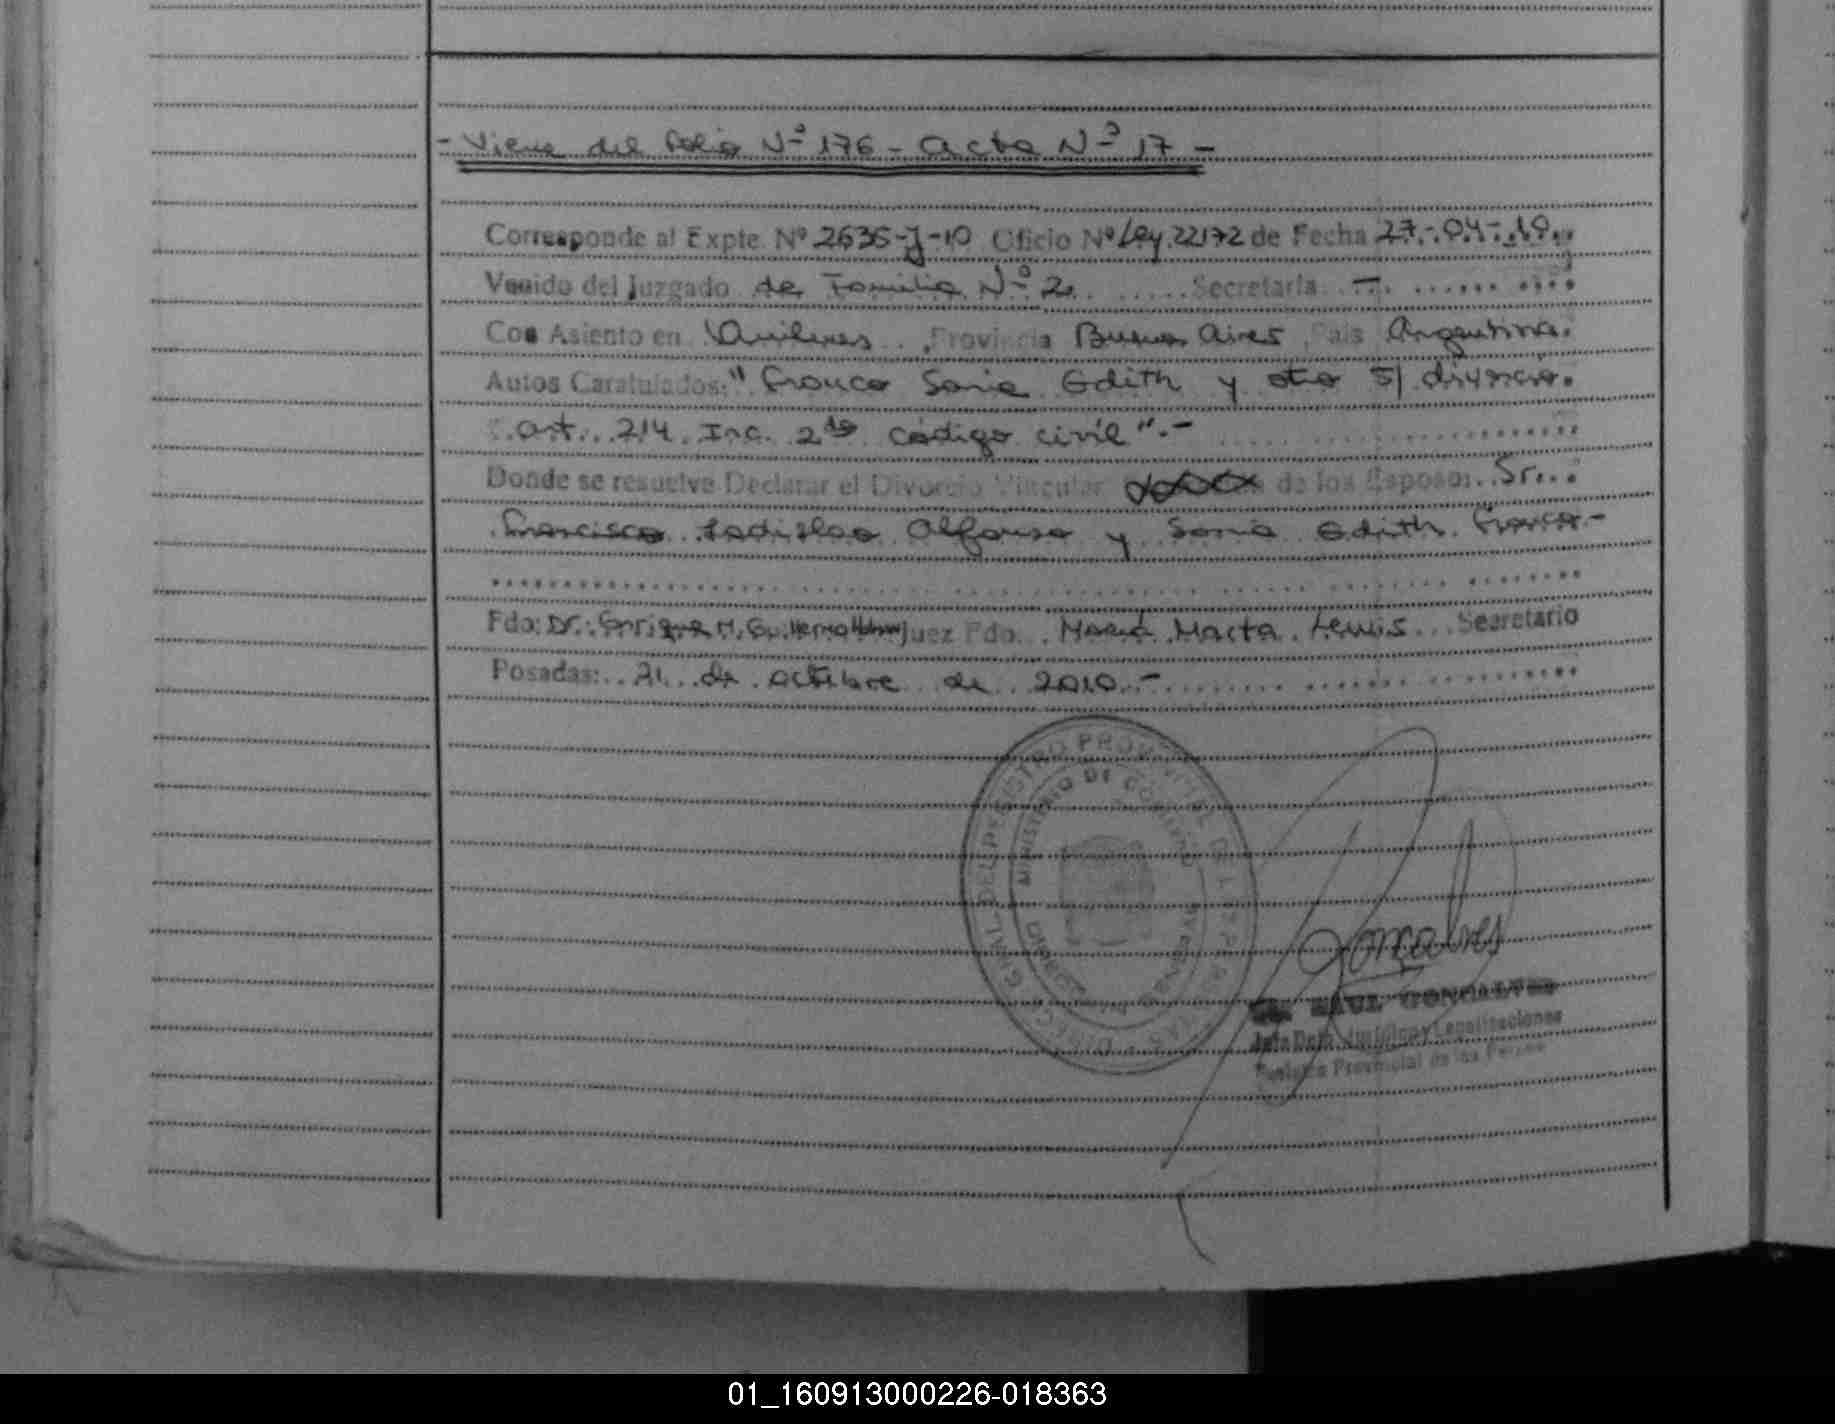 - Viene del folio Nº 176 - acta Nº 17 -
Corresponde al Expte. Nº 2635-J-10 Oficio Nº Ley 22172 de Fecha 27-04-10
Venido del Juzgado de Familia Nº 2 Secretaría -
Con Asiento en Quilmes, Provincia Buenos Aires, País Argentina.
Autos Caratulados: "Franco Sonia Edith y otro s/ divorcio.
art. 214 Inc. 2do código civil".-
Donde se resuelve Declarar el Divorcio Vincular de los Esposos Sr.
Francisco Ladislao Alfonso y Sonia Edith Franco.-
Fdo: Dr. Enrique M. Guillermo Juez Fdo. María Marta Lewis Secretario
Posadas: 21 de octubre de 2010.-
DIRECCION GRAL. DEL REGISTRO PROVINCIAL DE LAS PERSONAS
MINISTERIO DE GOBIERNO
GONCALVES
Dr. RAUL GONCALVES
Jefe Dpto. Jurídico y Legalizaciones
Registro Provincial de las Personas
01_160913000226-018363